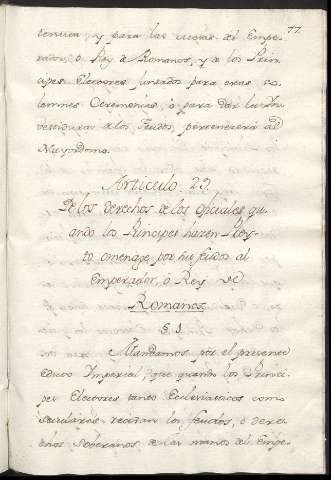 77.
y para las mesas del Empe-
rador, ó Rey de Romanos, y de los Prin-
cipes Electores juntados para esas so-
lemnes Ceremonias, ó para dar las In-
vestiduras de los Feudos, pertenecerá al
Mayordomo.
Articulo. 29.
De los derechos de los oficiales qu-
ando los Principes hazen Pleyt-
to omenage por sus feudos al
Emperador, ó Rey de
Romanos.
§. 1.
Mandamos por el presente
Edicto Imperial, que quando los Princi-
pes Electores tanto Ecclesiasticos como
Seculares reciban los feudos, ó dere-
chos soberanos de las manos del Empe-